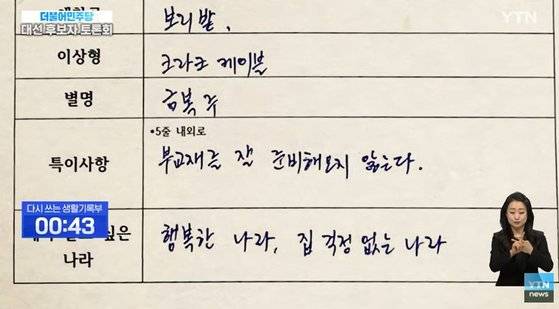 더불어민주당
대선 후보자 토론회
YTN
보리밭,
이상형
크라크 케이블
별명
금복주
•5줄 내외로
특이사항
부교재를 잘 준비해오지 않는다.
다시 쓰는 생활기록부
00:43
싶은
나라
행복한 나라, 집 걱정 없는 나라
YTN
news